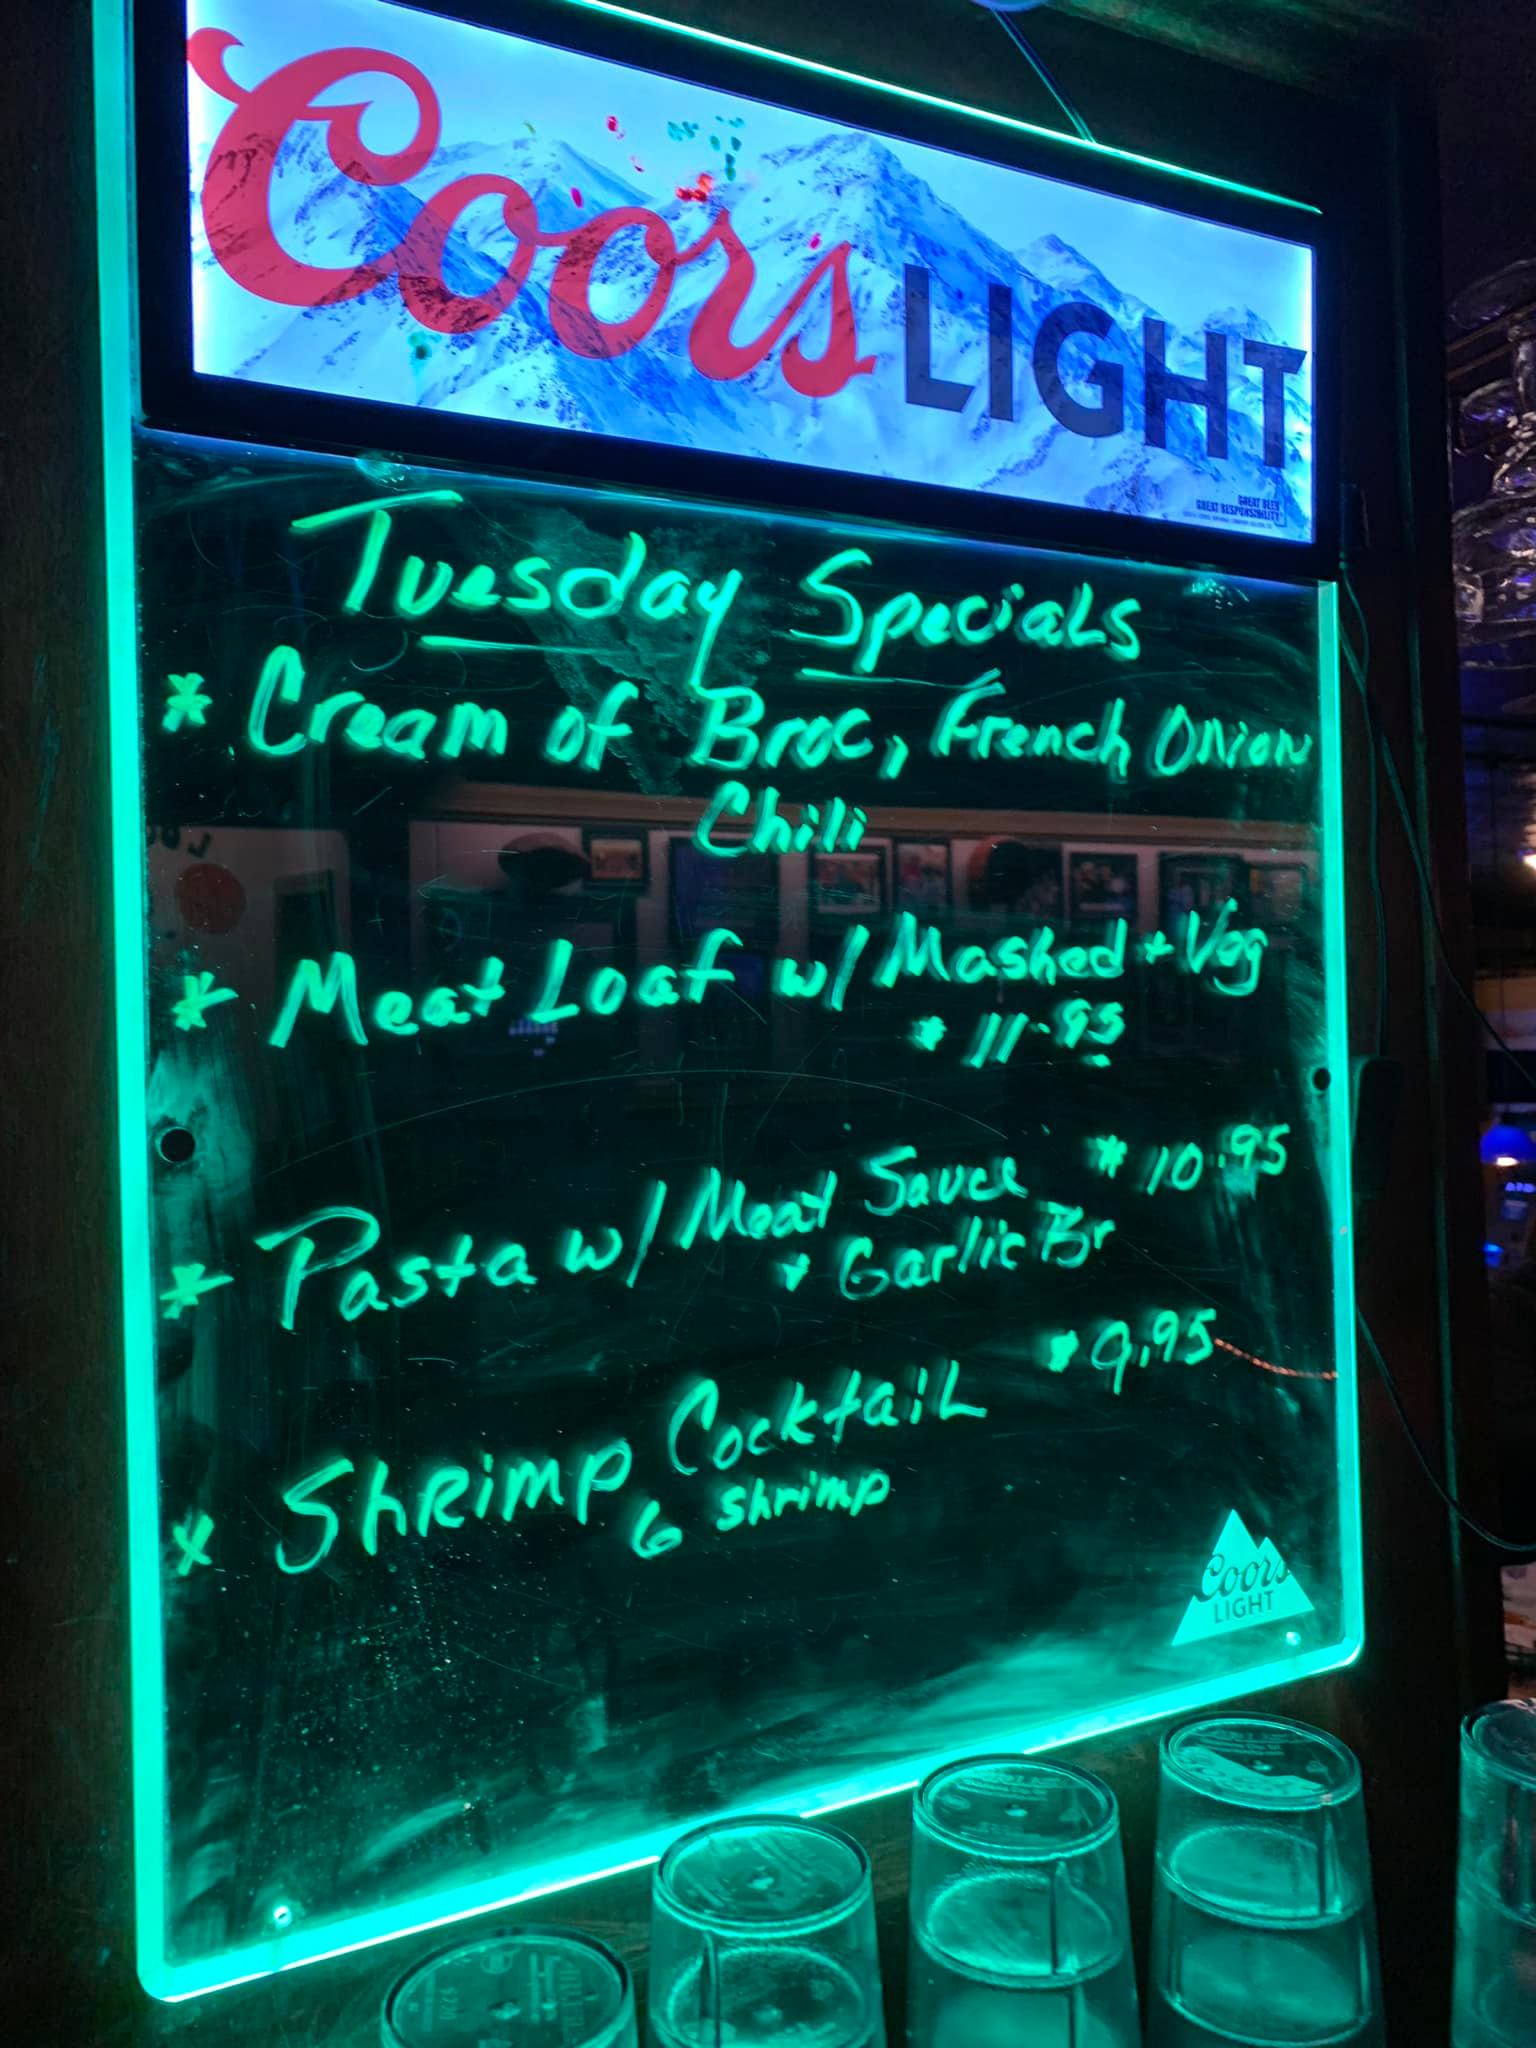 Coors LIGHT
GREAT BEER
GREAT RESPONSIBILITY
Tuesday Specials
* Cream of Broc, French Onion
Chili
* Meat Loaf w/ Mashed + Veg
$ 11.95
* Pasta w/ Meat Sauce $ 10.95
+ Garlic Br
$ 9.95
* Shrimp Cocktail
6 shrimp
Coors
LIGHT